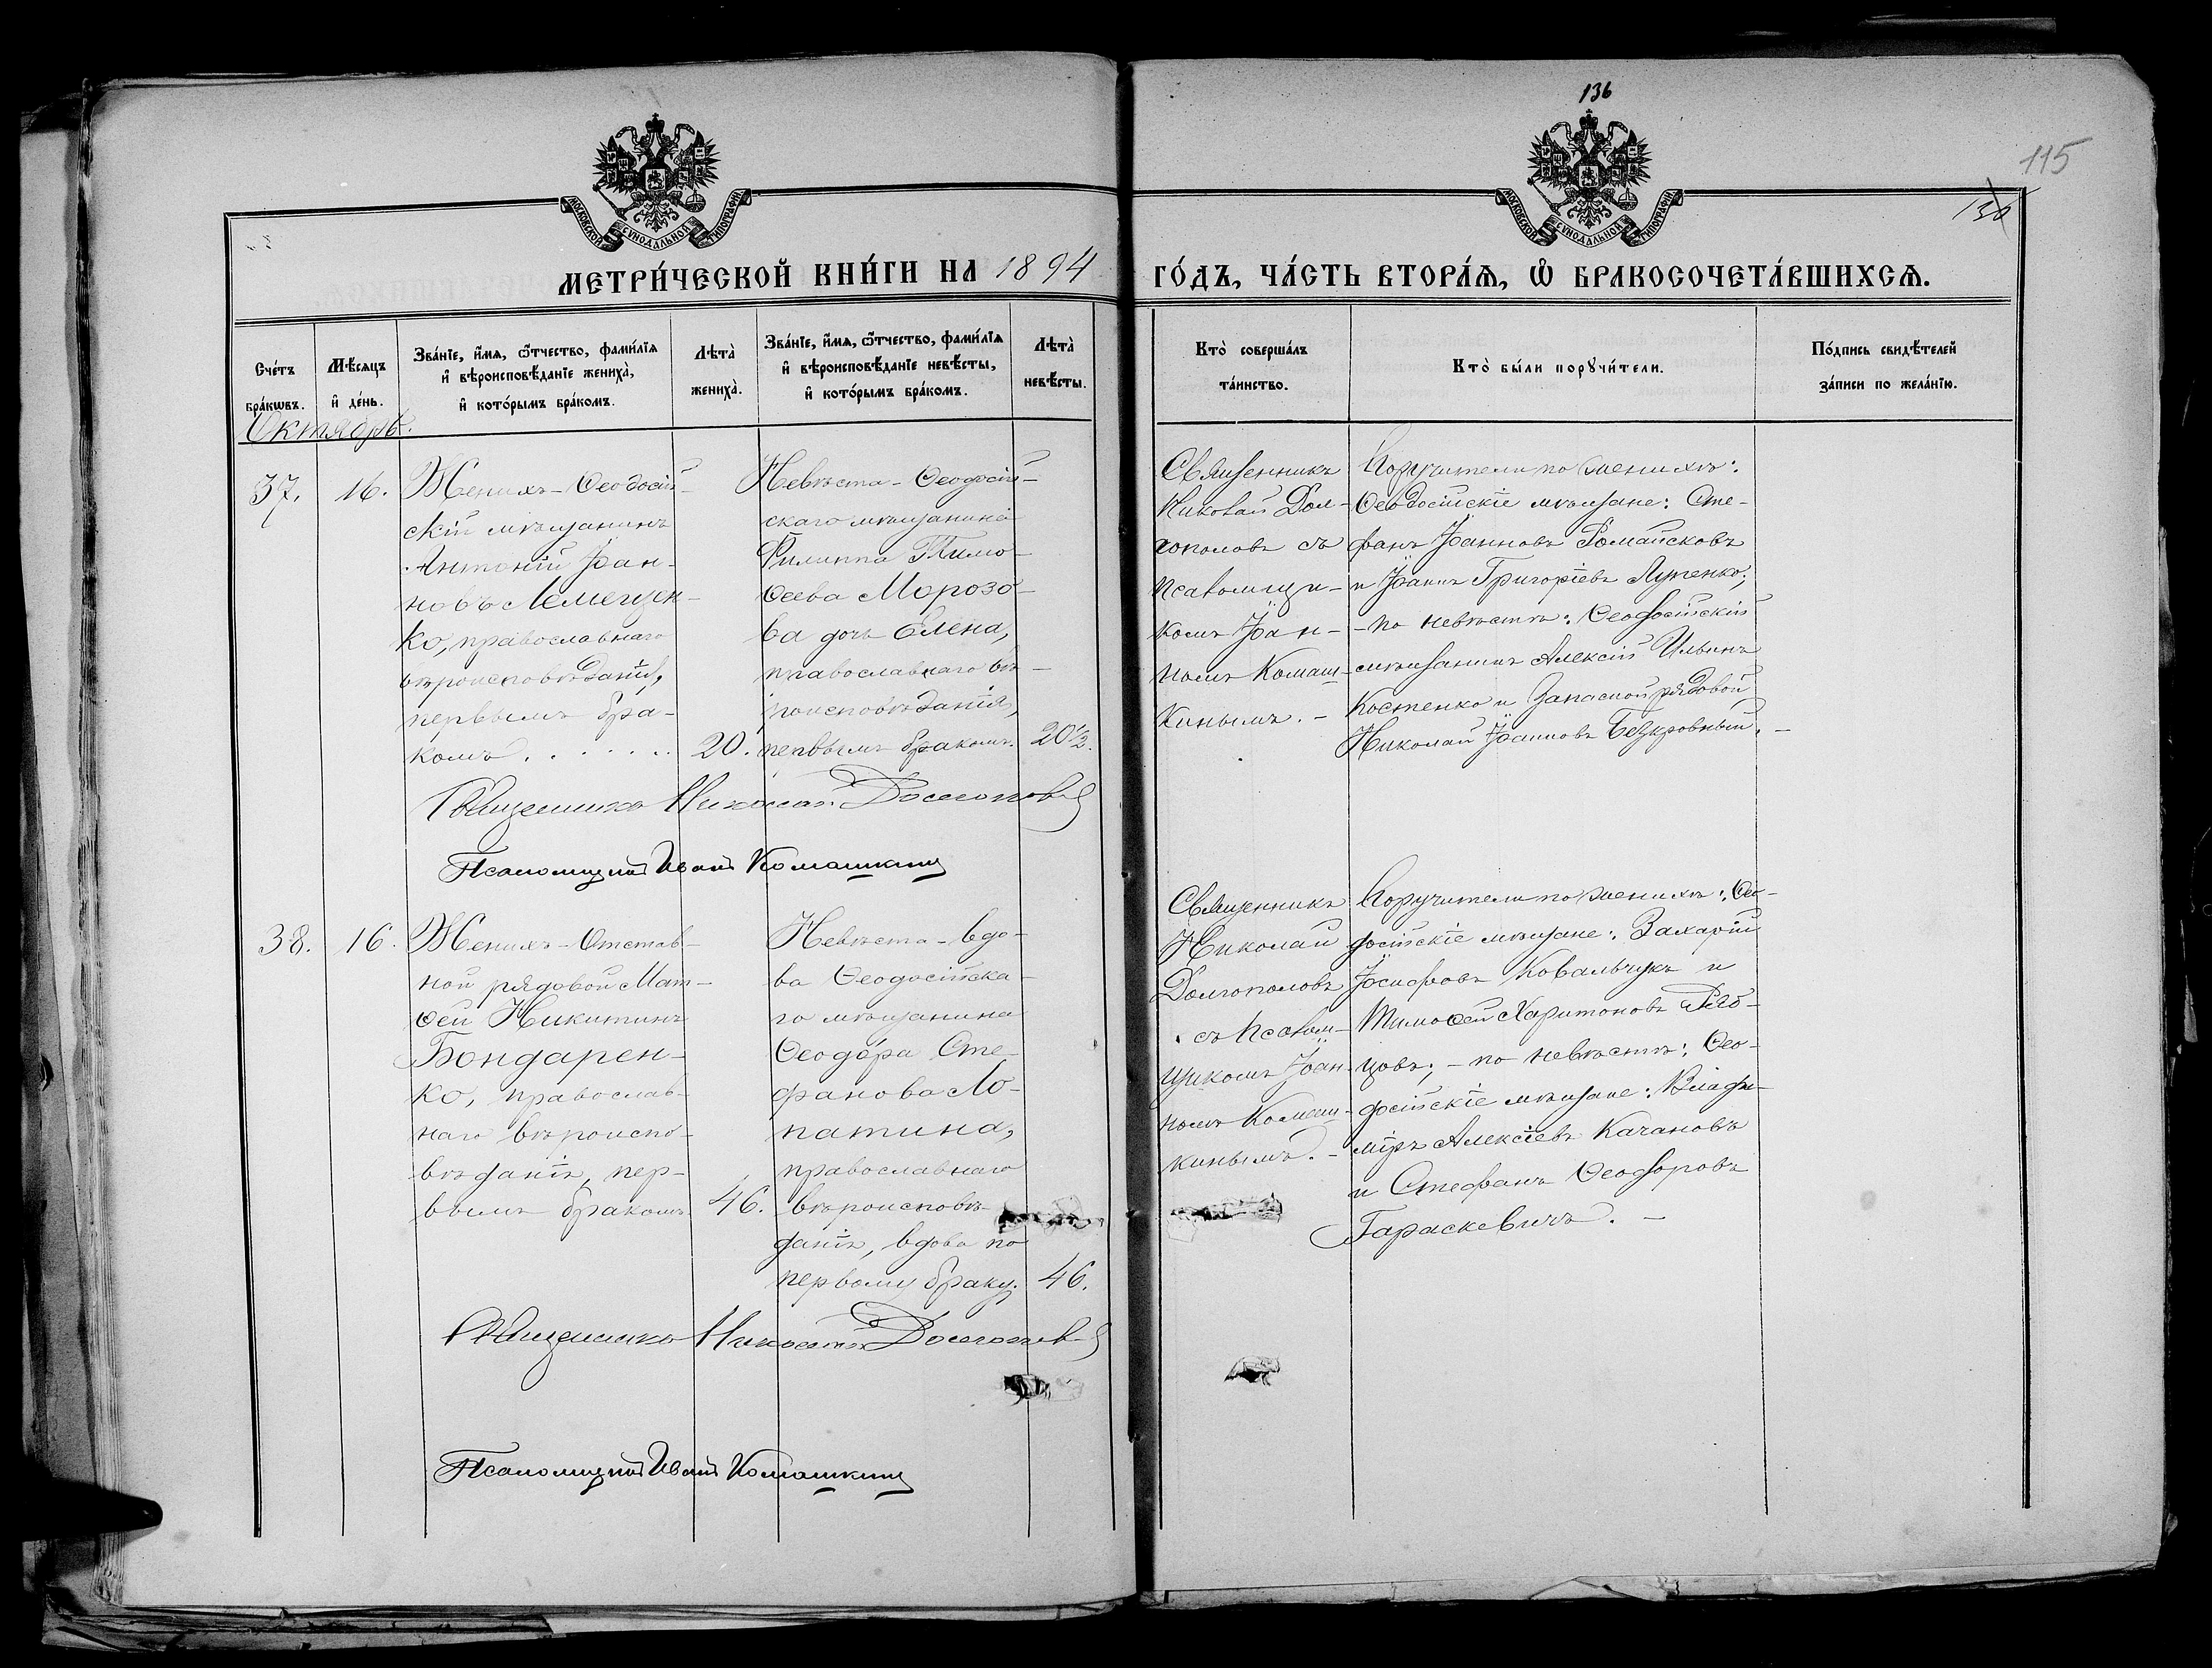 136
115
130
МОСКОВСКОЙ СѴНОДАЛЬНОЙ ТИПОГРАФІИ
МОСКОВСКОЙ СѴНОДАЛЬНОЙ ТИПОГРАФІИ
МЕТРИ́ЧЕСКОЙ КНИ́ГИ НА 1894
ГО́ДЪ, ЧА́СТЬ ВТОРА́Ѧ, Ѡ҆ БРАКОСОЧЕТА́ВШИХСѦ.
Сче́тъ
бра́кѡвъ.
Мѣ́сяцъ
и҆ де́нь.
Зва́нїе, и҆́мѧ, ѻ҆́тчество, фами́лїѧ
и҆ вѣроисповѣ́данїе жениха̀,
и҆ кото́рымъ бра́комъ.
Лѣта̀
жениха̀.
Зва́нїе, и҆́мѧ, ѻ҆́тчество, фами́лїѧ
и҆ вѣроисповѣ́данїе невѣ́сты,
и҆ кото́рымъ бра́комъ.
Лѣта̀
невѣ́сты.
Кто̀ соверша́лъ
та́инство.
Кто̀ бы́ли порꙋчи́тели.
По́дпись свидѣ́телей
за́писи по жела́нїю.
Октябрь.
37.
16.
Женихъ - Ѳеодосій-
скій мѣщанинъ
Антоній Іоан-
новъ Лемещен-
ко, православнаго
вѣроисповѣданія,
первымъ бра-
комъ . . . . . . .
20.
Невѣста - Ѳеодосій-
скаго мѣщанина
Филиппа Тимо-
ѳеева Морозо-
ва дочь Елена,
православнаго вѣ-
роисповѣданія,
первымъ бракомъ.
20½.
Священникъ
Николай Дол-
гополовъ съ
псаломщи-
комъ Іоан-
номъ Комаш-
кинымъ. -
Поручители по женихѣ:
Ѳеодосійскіе мѣщане: Сте-
фанъ Іоанновъ Романсковъ
и Іоаннъ Григоріевъ Луценко;
- по невѣстѣ: Ѳеодосійскій
мѣщанинъ Алексій Ильинъ
Костенко и Запасной рядовой
Николай Іоанновъ Безкровный. -
Священникъ Николай Долгополовъ
Псаломщикъ Иванъ Комашкинъ
38.
16.
Женихъ - Отстав-
ной рядовой Мат-
ѳей Никитинъ
Бондарен-
ко, православ-
наго вѣроиспо-
вѣданія, пер-
вымъ бракомъ.
46.
Невѣста - вдо-
ва Ѳеодосійска-
го мѣщанина
Ѳеодора Сте-
фанова Ло-
патина,
православнаго
вѣроисповѣ-
данія, вдова по
первому браку.
46.
Священникъ
Николай
Долгополовъ
съ псалом-
щикомъ Іоан-
номъ Комаш-
кинымъ. -
Поручители по женихѣ: Ѳео-
досійскіе мѣщане: Захарій
Іосифовъ Ковальчукъ и
Тимоѳей Харитоновъ
цовъ; - по невѣстѣ: Ѳео-
досійскіе мѣщане: Влади-
міръ Алексіевъ Качановъ
и Стефанъ Ѳеодоровъ
Гараскевичъ. -
Священникъ Николай Долгополовъ
Псаломщикъ Иванъ Комашкинъ